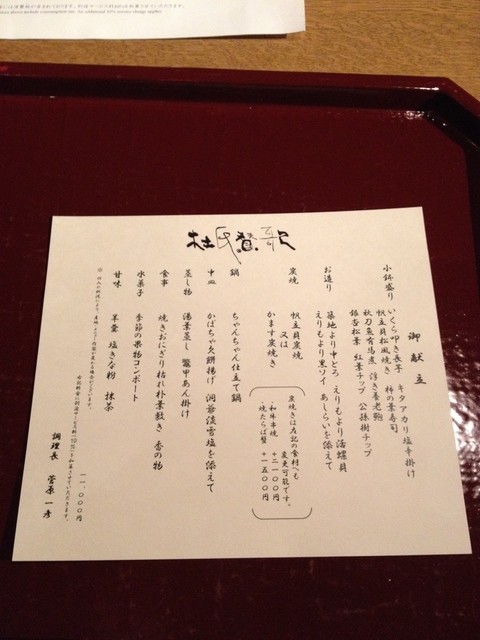 additional 10% service charge applies.
杜氏賛歌
御献立
小鉢盛り いくら叩き長芋 キタアカリ塩辛掛け
帆立貝松風焼き 柿の葉寿司
秋刀魚有馬煮 浮き養老麩
銀杏松葉 紅葉チップ 公孫樹チップ
お造り 築地より中とろ えりもより活螺貝
えりもより黒ソイ あしらいを添えて
炭焼 帆立貝炭焼
又は
かます炭焼き
炭焼きは左記の食材へも
変更可能です。
・和牛串焼 +二一〇〇円
・焼たらば蟹 +一五〇〇円
鍋 ちゃんちゃん仕立て鍋
中皿 かぼちゃ久餅揚げ 洞爺淡雪塩を添えて
蒸し物 湯葉蒸し 鼈甲あん掛け
食事 焼きおにぎり枯れ朴葉敷き 香の物
水菓子 季節の果物コンポート
甘味 羊羹 塩きな粉 抹茶
一一、〇〇〇円
調理長 菅原 一彦